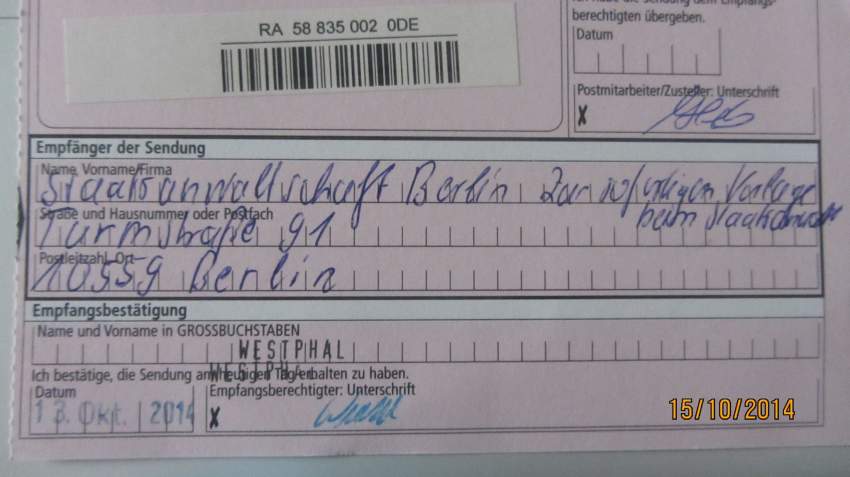 RA 58 835 002 0DE
berechtigten übergeben.
Datum
Postmitarbeiter/Zusteller: Unterschrift
X
Empfänger der Sendung
Name, Vorname/Firma
Staatsanwaltschaft Berlin zur sofortigen Vorlage
beim Staatsanwalt
Straße und Hausnummer oder Postfach
Turmstraße 91
Postleitzahl, Ort
10559 Berlin
Empfangsbestätigung
Name und Vorname in GROSSBUCHSTABEN
WESTPHAL
Ich bestätige, die Sendung am heutigen Tag erhalten zu haben.
Datum
Empfangsberechtigter: Unterschrift
13. Okt. 2014
X
15/10/2014